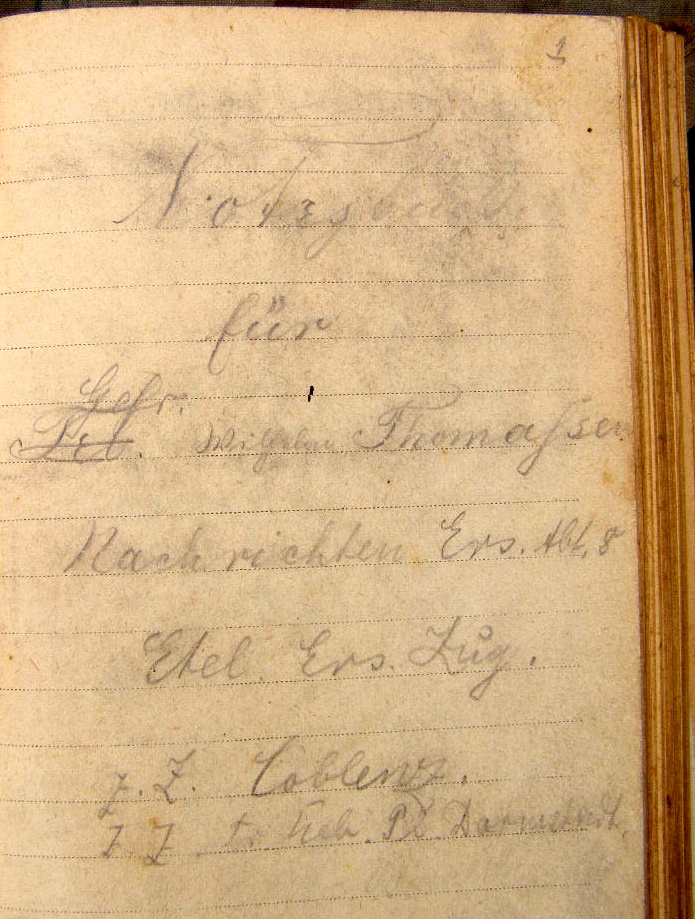 1
Notizbuch
für
Gefr.
Tel. Wilhelm Thomassen
Nachrichten Ers. Abt. 8
Etel. Ers. Zug.
z. Z. Coblenz.
z. Z. Tr. Ueb. Pl. Darmstadt.